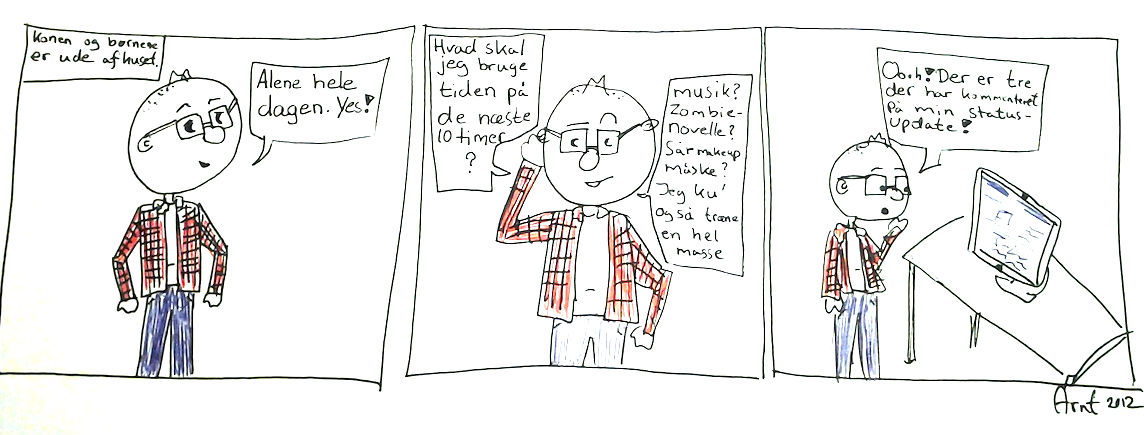 Konen og børnene
er ude af huset.
Alene hele
dagen. Yes!
Hvad skal
jeg bruge
tiden på
de næste
10 timer
?
musik?
Zombie-
novelle?
Sår makeup
måske?
Jeg ku'
også træne
en hel
masse
Oooh! Der er tre
der har kommenteret
på min status-
update!
Arnt 2012